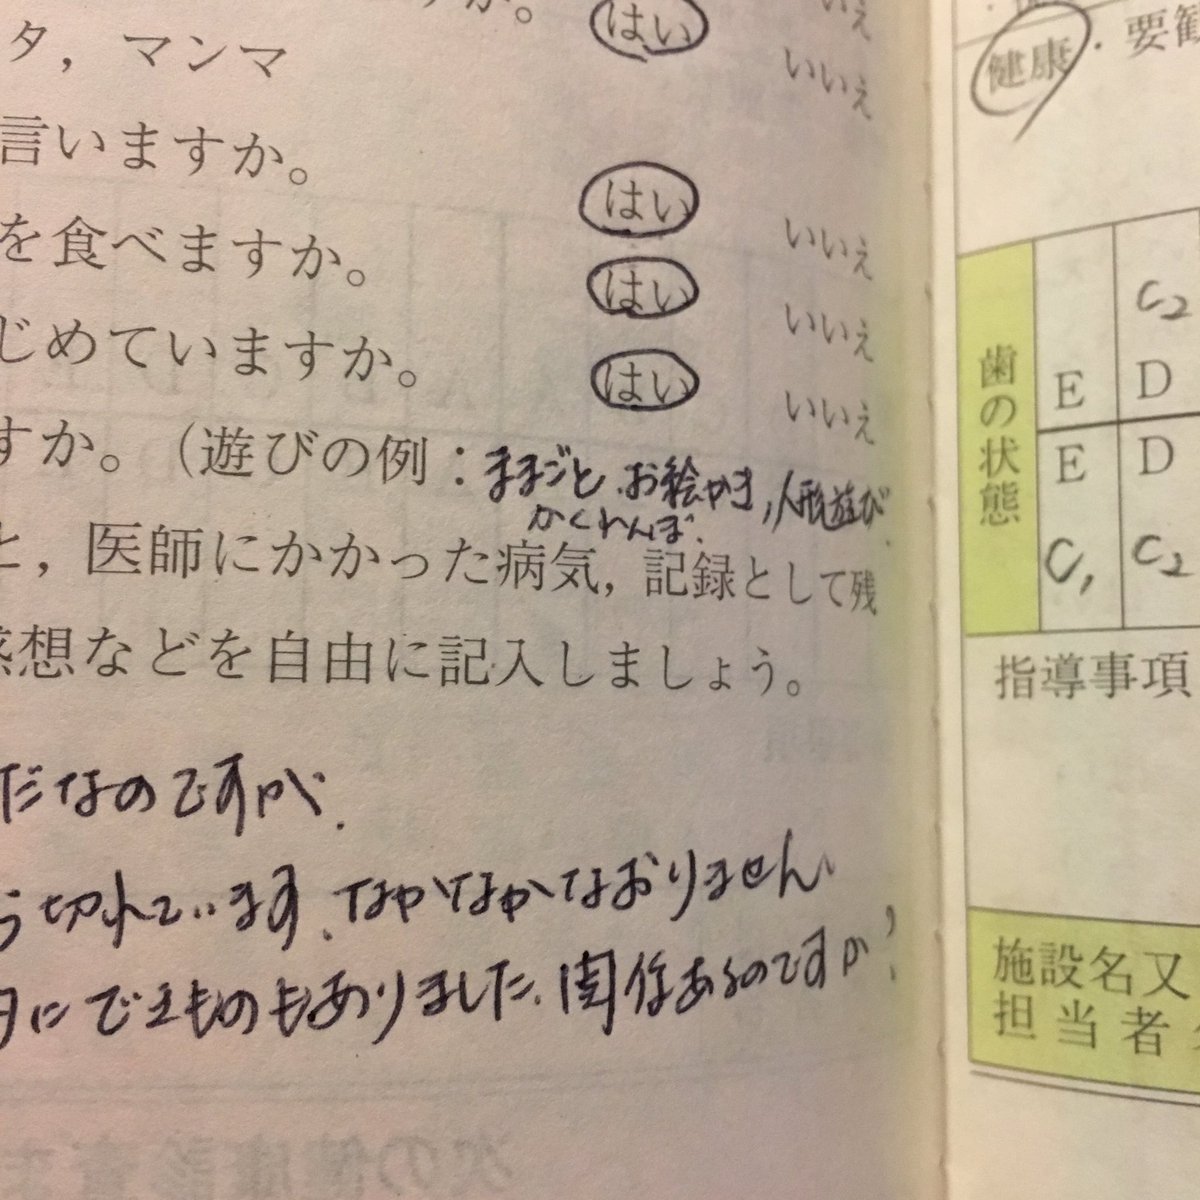 すか。 はい いいえ
タ，マンマ いいえ
言いますか。 はい いいえ
を食べますか。 はい いいえ
じめていますか。 はい いいえ
すか。（遊びの例：ままごと、お絵かき，人形遊び
かくれんぼ.
と，医師にかかった病気，記録として残
感想などを自由に記入しましょう。
だなのですが、
切れています.なかなかなおりません
にできものもありました.関係あるのですか
健康・要観
C2
歯の状態
E D
E D
C1 C2
指導事項
施設名又
担当者
次の健康診査ま